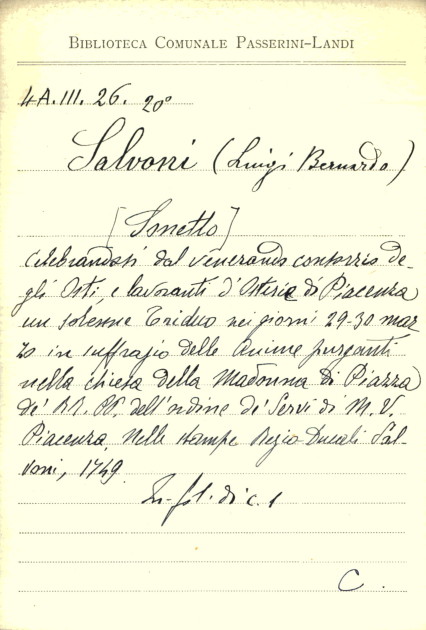 BIBLIOTECA COMUNALE PASSERINI-LANDI
4A.III.26. 20°
Salvoni (Luigi Bernardo)
[Sonetto]
Celebrandosi dal venerando consorzio de-
gli Osti, e lavoranti d'Osteria di Piacenza
un solenne Triduo nei giorni 29-30 mar
zo in suffragio delle Anime purganti
nella chiesa della Madonna di Piazza
de' RR. PP. dell'ordine de' Servi di M. V.
Piacenza, Nelle stampe Regio-Ducali Sal-
voni, 1749
In-fol. di c. 1
C.